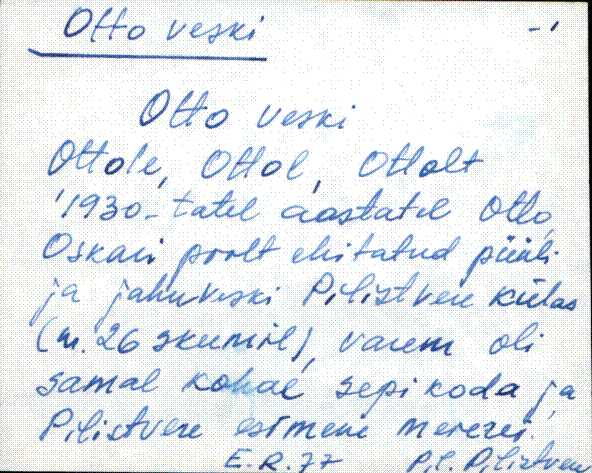 Otto veski -1
Otto veski
Ottole, Ottol, Ottolt
1930-tatel aastatel Otto
Oskari poolt ehitatud püüli
ja jahuveski Pilistvere külas
(m. 26 varem oli
samal kohal sepikoda ja
Pilistvere esimene meierei.
E.R.77 Pilistvere